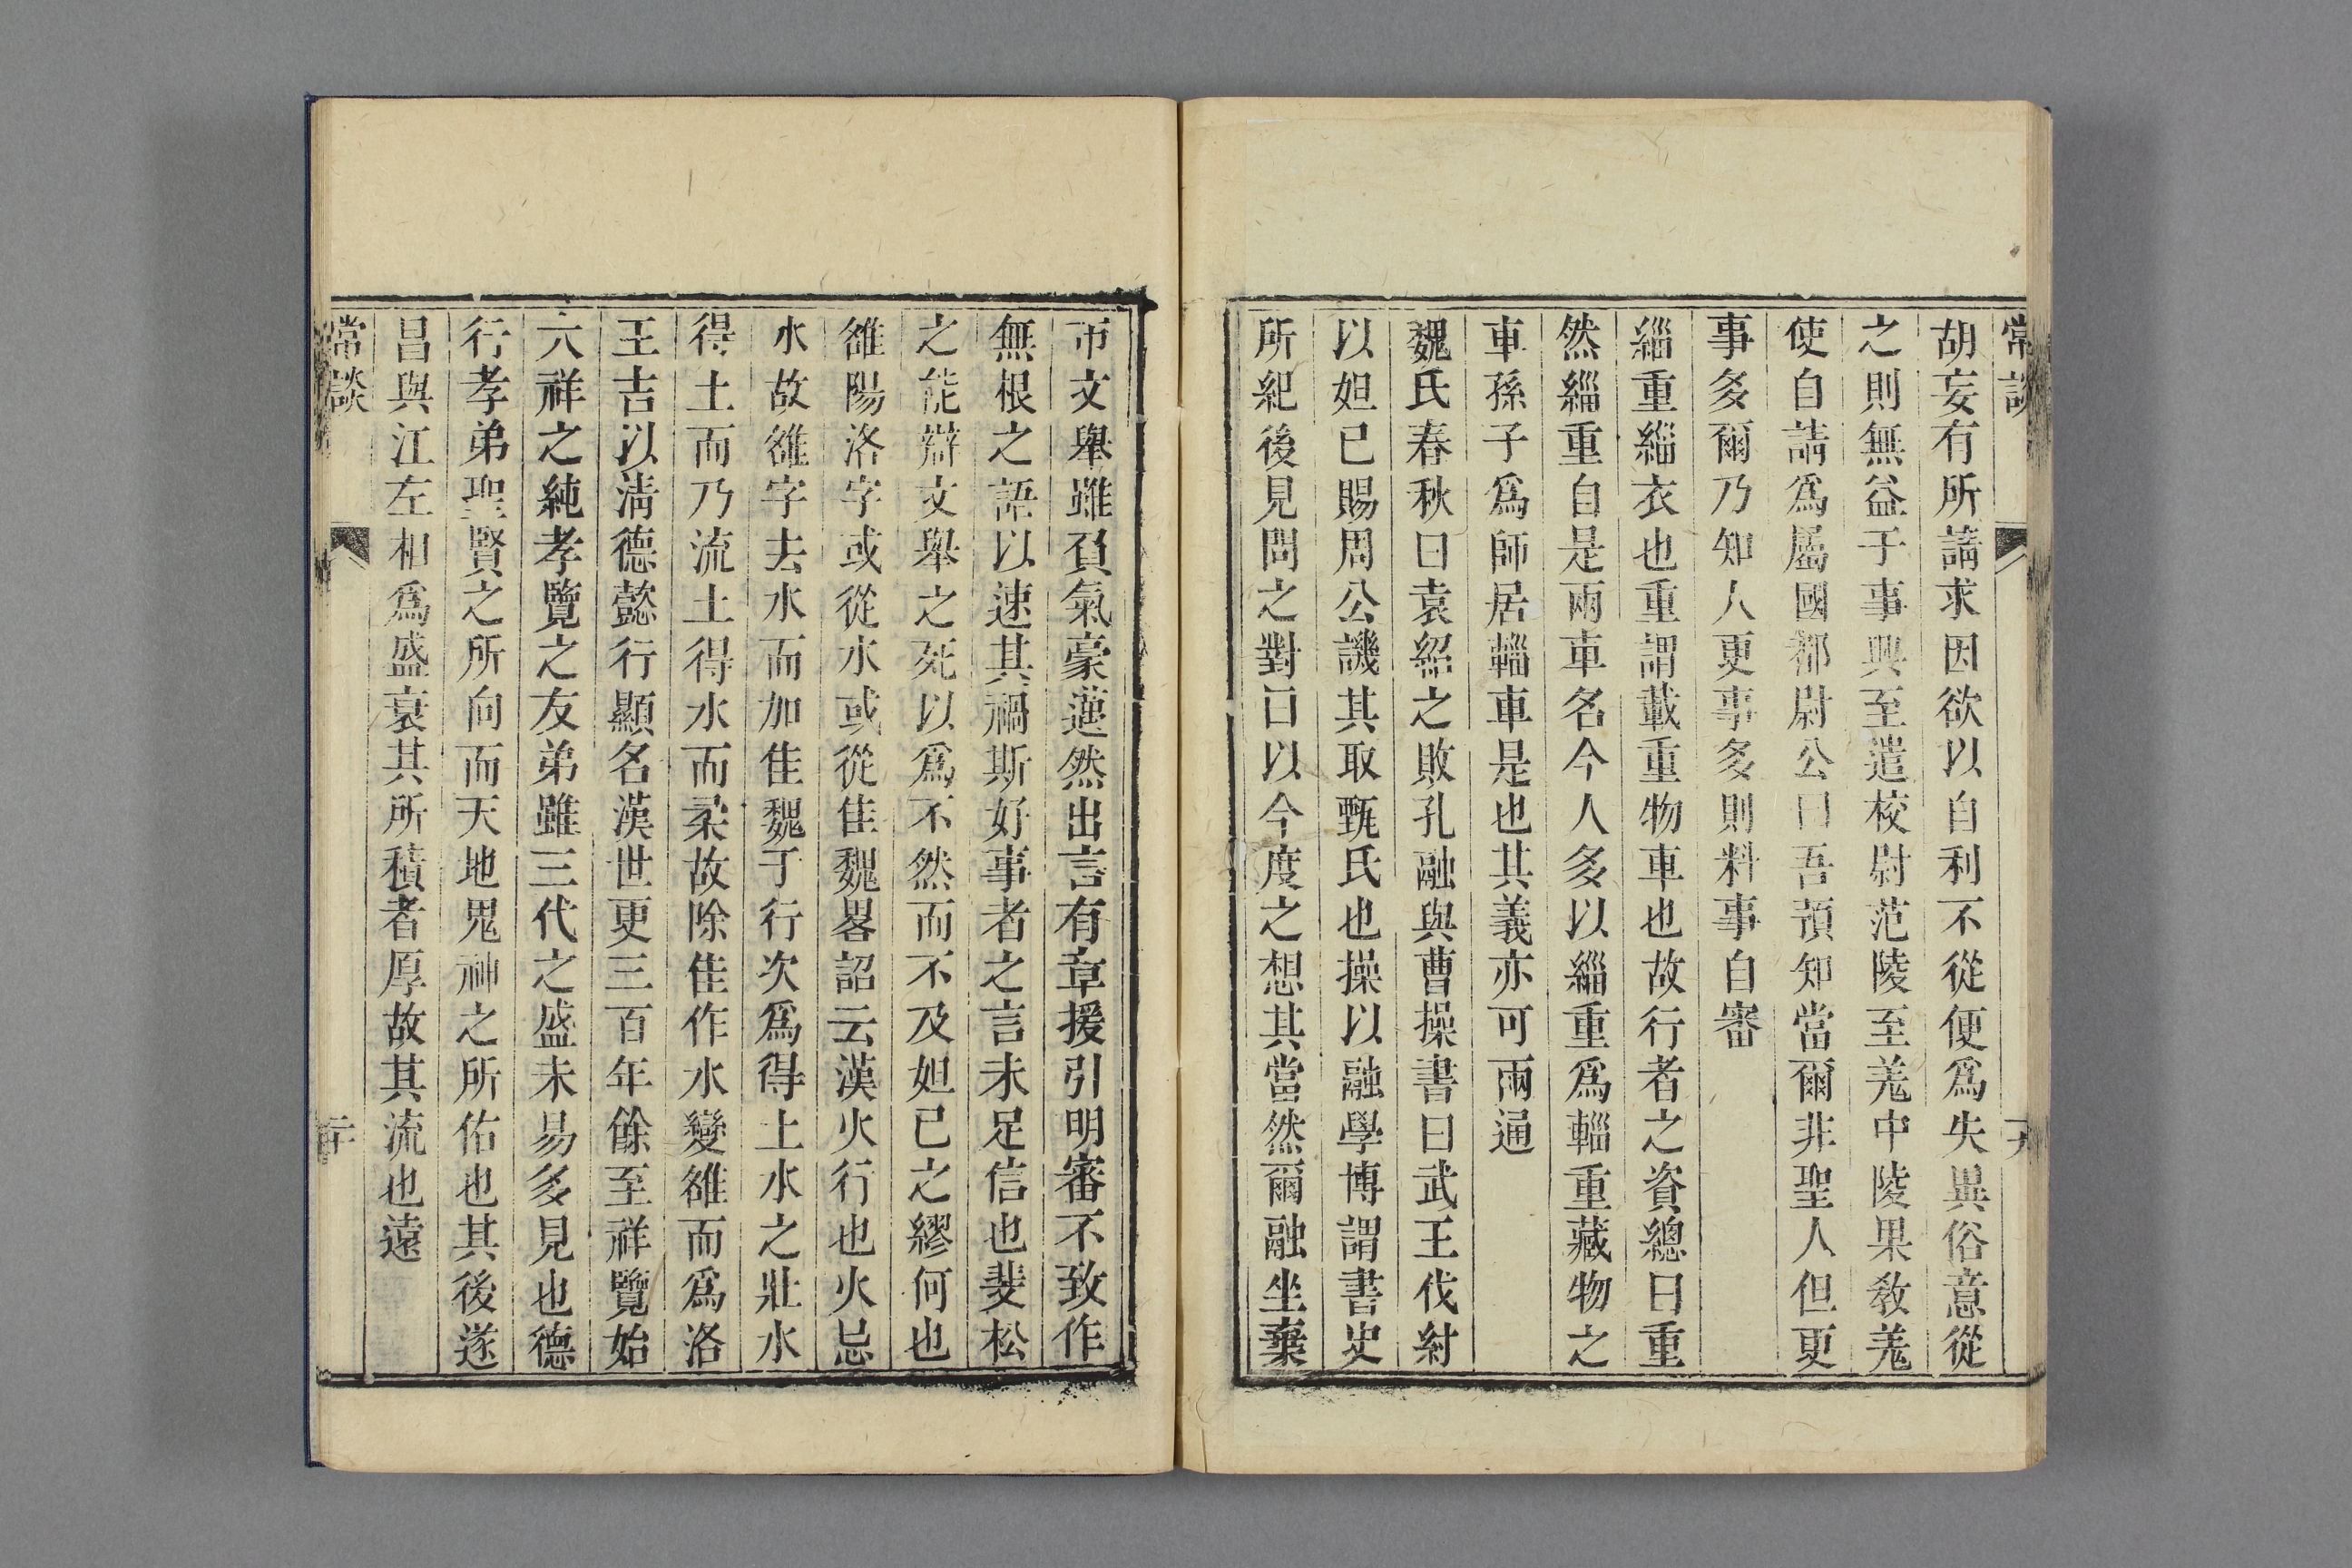 常談
十九
胡妄有所請求因欲以自利不從便爲失異俗意從
之則無益于事興至遣校尉范陵至羌中陵果敎羌
使自請爲屬國都尉公曰吾預知當爾非聖人但更
事多爾乃知人更事多則料事自審
緇重緇衣也重謂載重物車也故行者之資總曰重
然緇重自是兩車名今人多以緇重爲輜重藏物之
車孫子爲師居輜車是也其義亦可兩通
魏氏春秋曰袁紹之敗孔融與曹操書曰武王伐紂
以妲已賜周公譏其取甄氏也操以融學博謂書史
所紀後見問之對曰以今度之想其當然爾融坐棄
市文舉雖負氣豪邁然出言有章援引明審不致作
無根之語以速其禍斯好事者之言未足信也斐松
之能辯文舉之死以爲不然而不及妲已之繆何也
雒陽洛字或從水或從隹魏畧詔云漢火行也火忌
水故雒字去水而加隹魏于行次爲得土水之壯水
得土而乃流土得水而柔故除佳作水變雒而爲洛
王吉以淸德懿行顯名漢世更三百年餘至祥覽始
六祥之純孝覽之友弟雖三代之盛未易多見也德
行孝弟聖賢之所向而天地鬼神之所佑也其後遂
昌與江左相爲盛衰其所積者厚故其流也遠
常談
二十